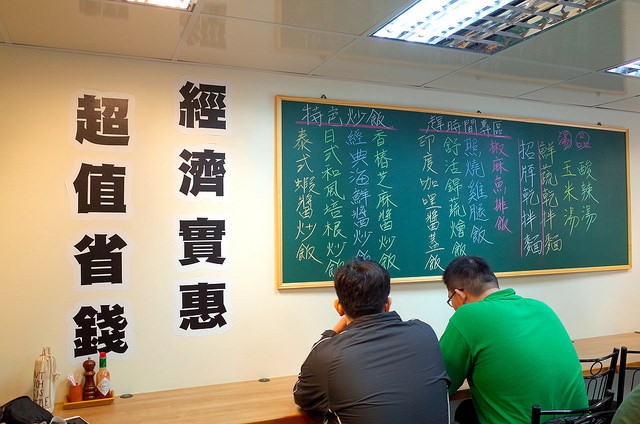 經濟實惠
超值省錢
湯品
酸辣湯
玉米湯
鮮蔬乾拌麵
招牌乾拌麵
趕時間專區
椒麻魚排飯
照燒雞腿飯
舒活鮮蔬燴飯
印度咖哩醬蓋飯
特色炒飯
香椿芝麻醬炒飯
經典海鮮醬炒飯
日式和風培根炒飯
泰式蝦醬炒飯